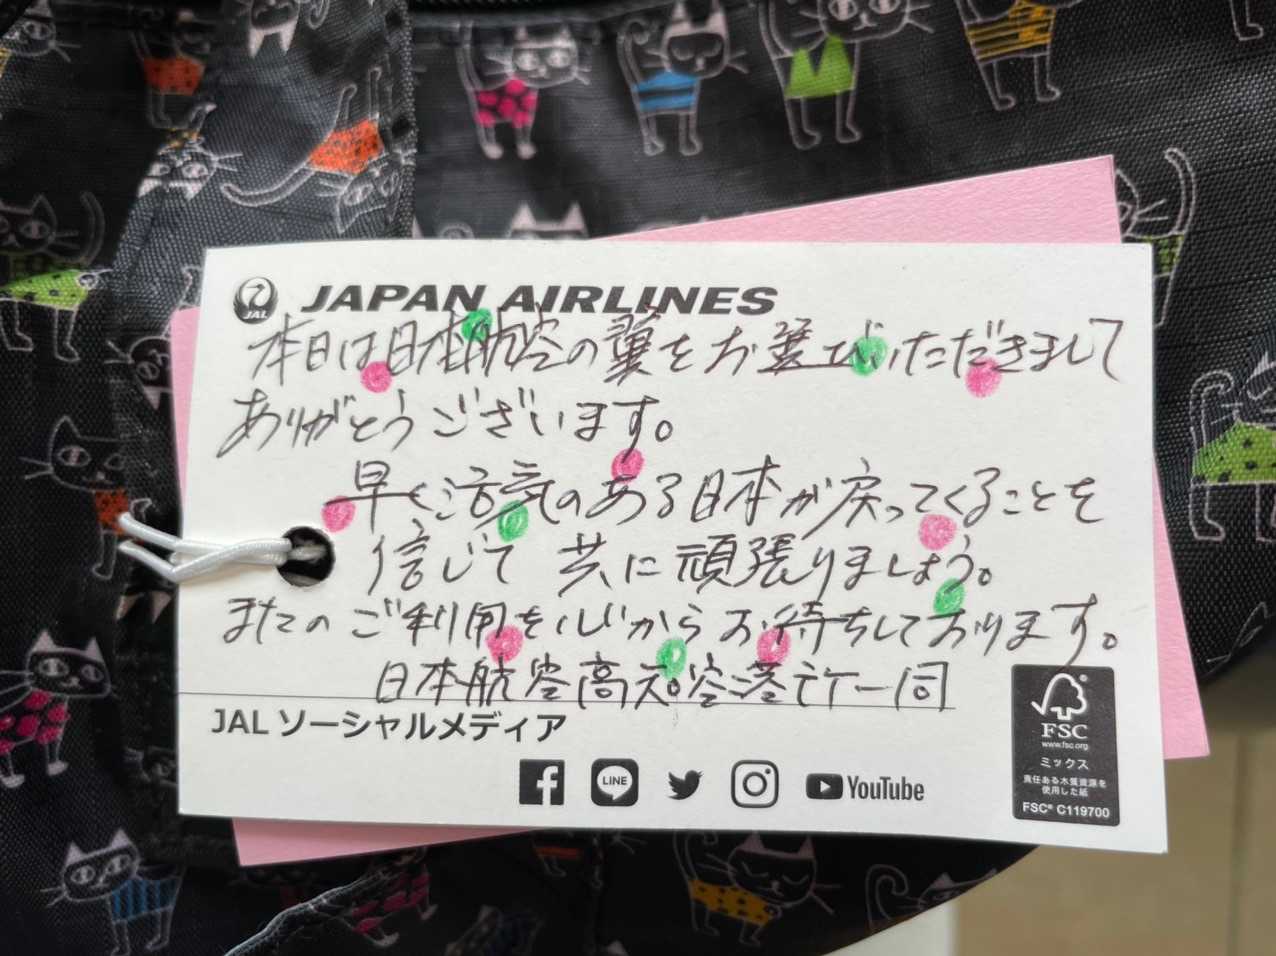 JAL
JAPAN AIRLINES
本日は日本航空の翼をお選びいただきまして
ありがとうございます。
早く活気のある日本が戻ってくることを
信じて 共に頑張りましょう。
またのご利用を心からお待ちしております。
日本航空高知空港所一同
JAL ソーシャルメディア
LINE
YouTube
FSC
www.fsc.org
ミックス
責任ある木質資源を
使用した紙
FSC® C119700